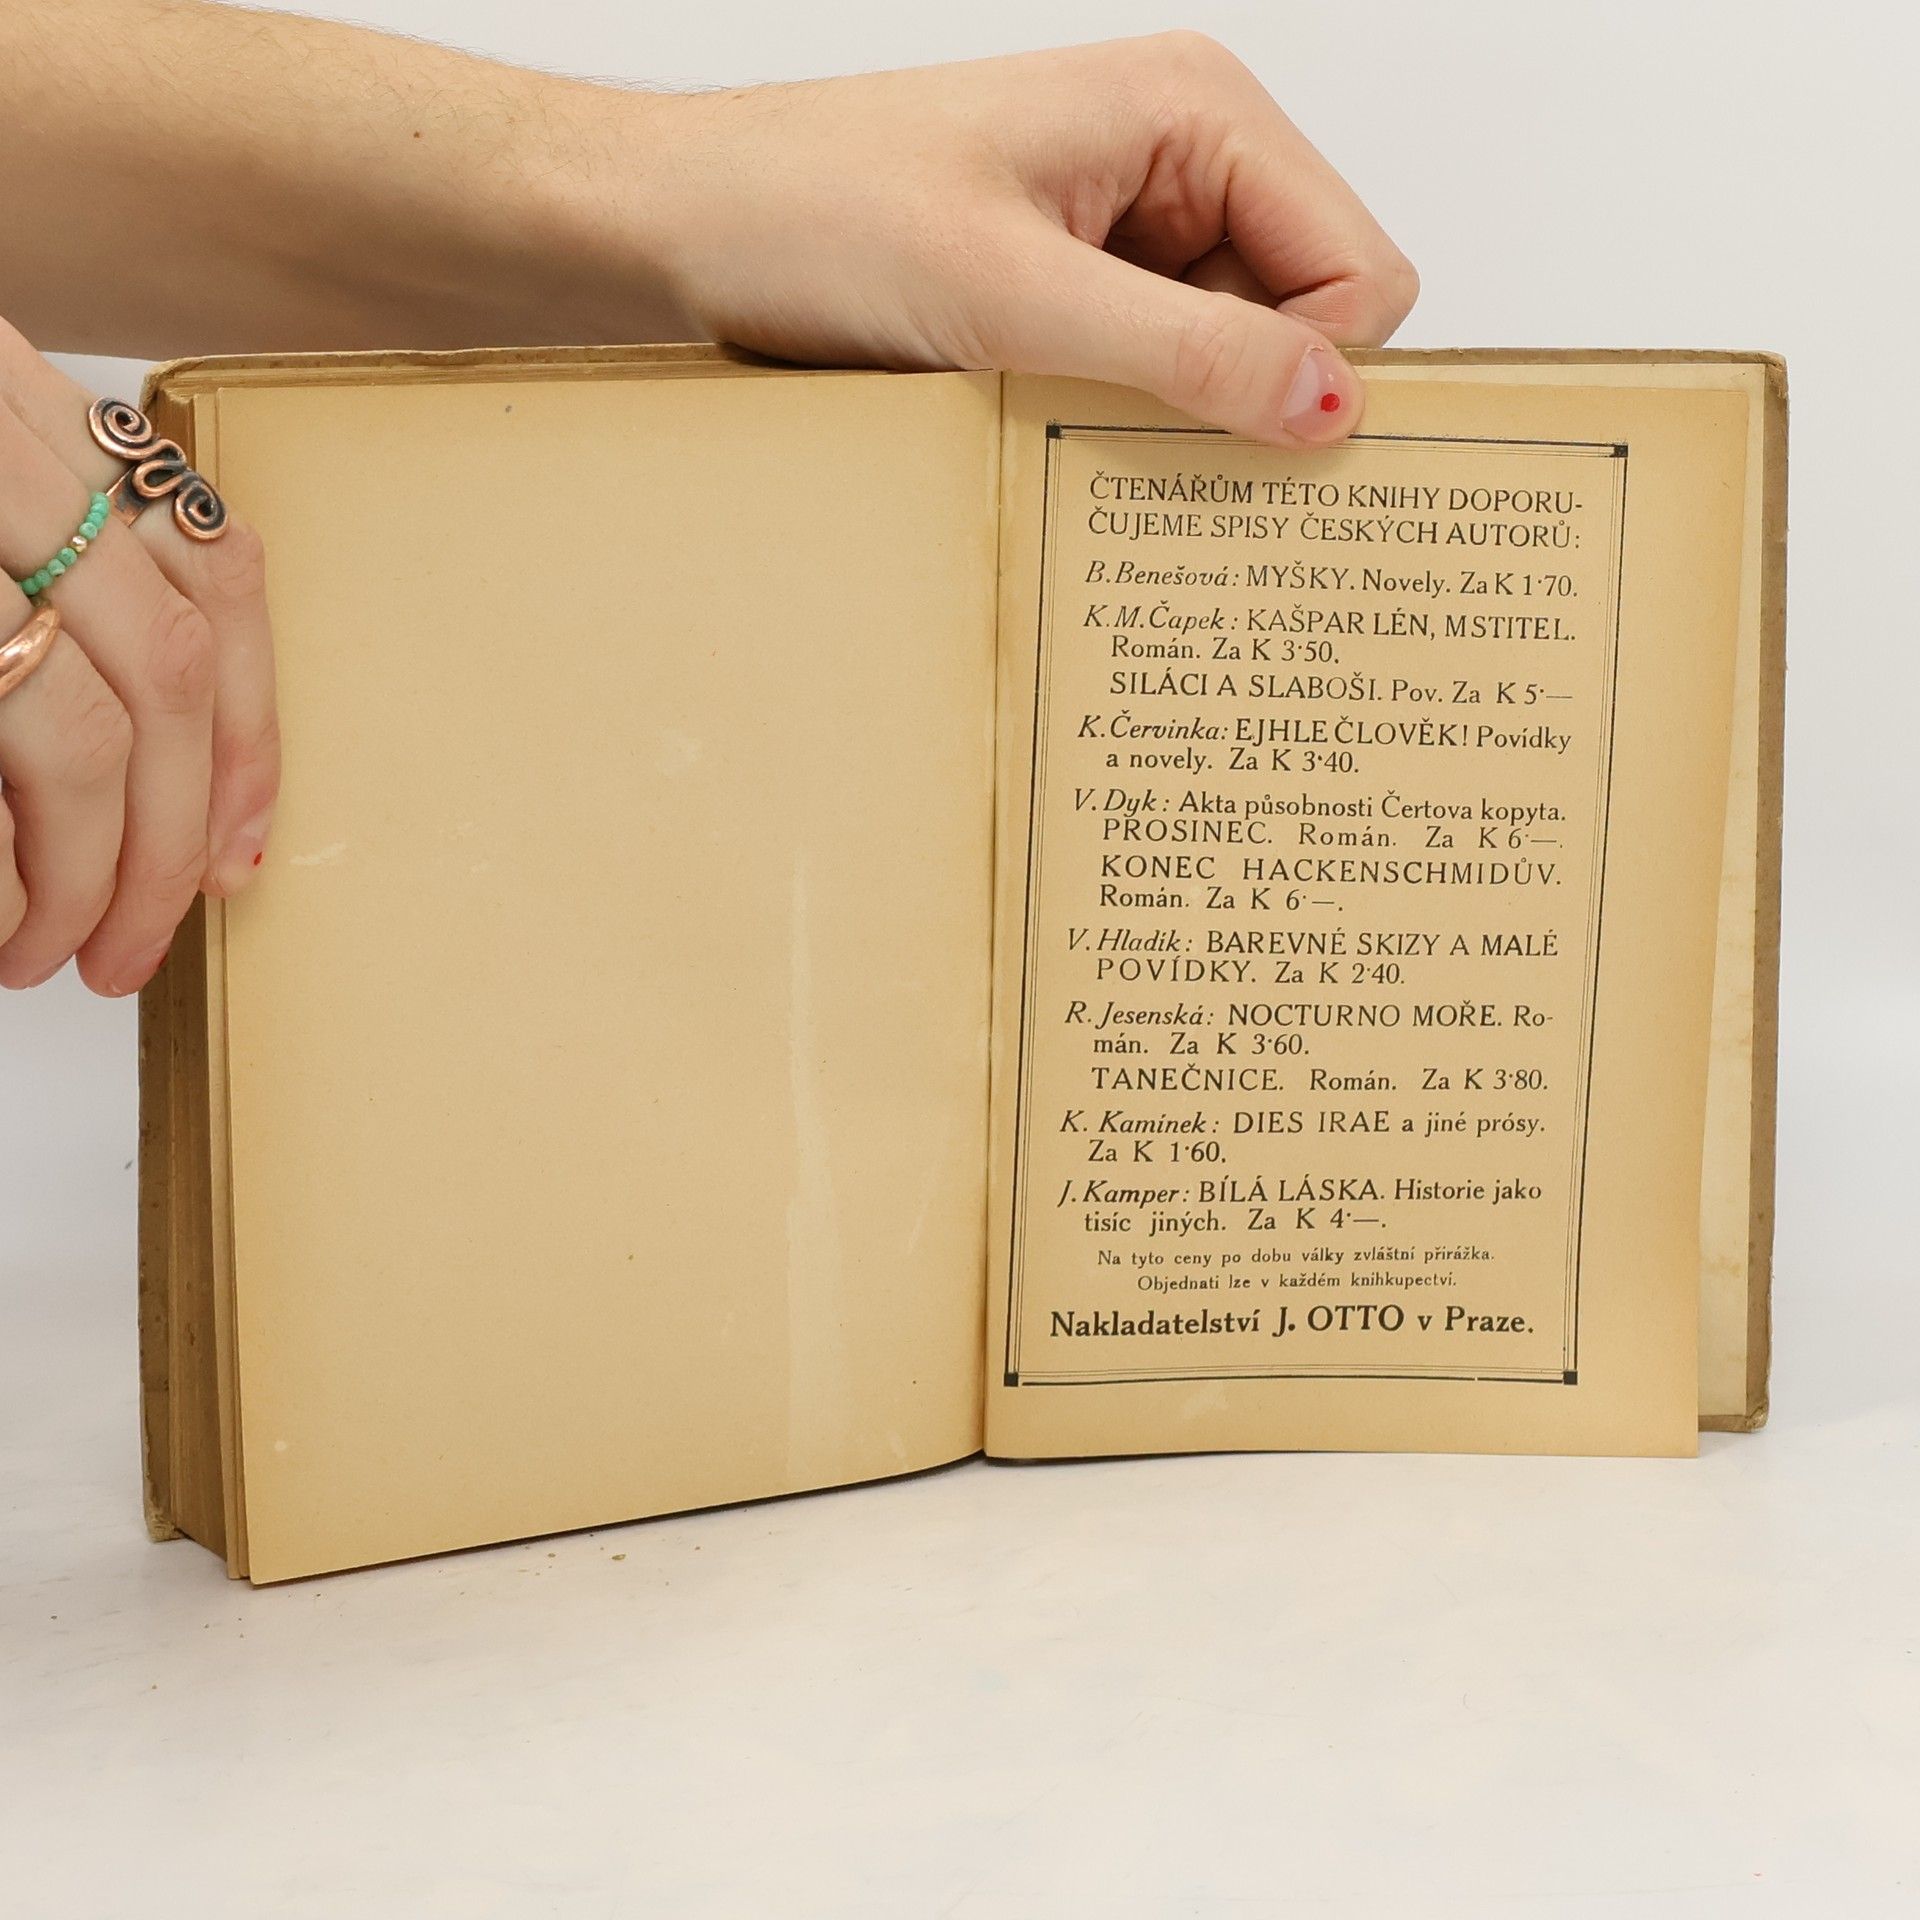 ČTENÁŘŮM TÉTO KNIHY DOPORU-
ČUJEME SPISY ČESKÝCH AUTORŮ:
B. Benešová: MYŠKY. Novely. Za K 1·70.
K. M. Čapek: KAŠPAR LÉN, MSTITEL.
Román. Za K 3·50.
SILÁCI A SLABOŠI. Pov. Za K 5·—
K. Červinka: EJHLE ČLOVĚK! Povídky
a novely. Za K 3·40.
V. Dyk: Akta působnosti Čertova kopyta.
PROSINEC. Román. Za K 6·—.
KONEC HACKENSCHMIDŮV.
Román. Za K 6·—.
V. Hladík: BAREVNÉ SKIZY A MALÉ
POVÍDKY. Za K 2·40.
R. Jesenská: NOCTURNO MOŘE. Ro-
mán. Za K 3·60.
TANEČNICE. Román. Za K 3·80.
K. Kamínek: DIES IRAE a jiné prósy.
Za K 1·60.
J. Kamper: BÍLÁ LÁSKA. Historie jako
tisíc jiných. Za K 4·—.
Na tyto ceny po dobu války zvláštní přirážka.
Objednati lze v každém knihkupectví.
Nakladatelství J. OTTO v Praze.